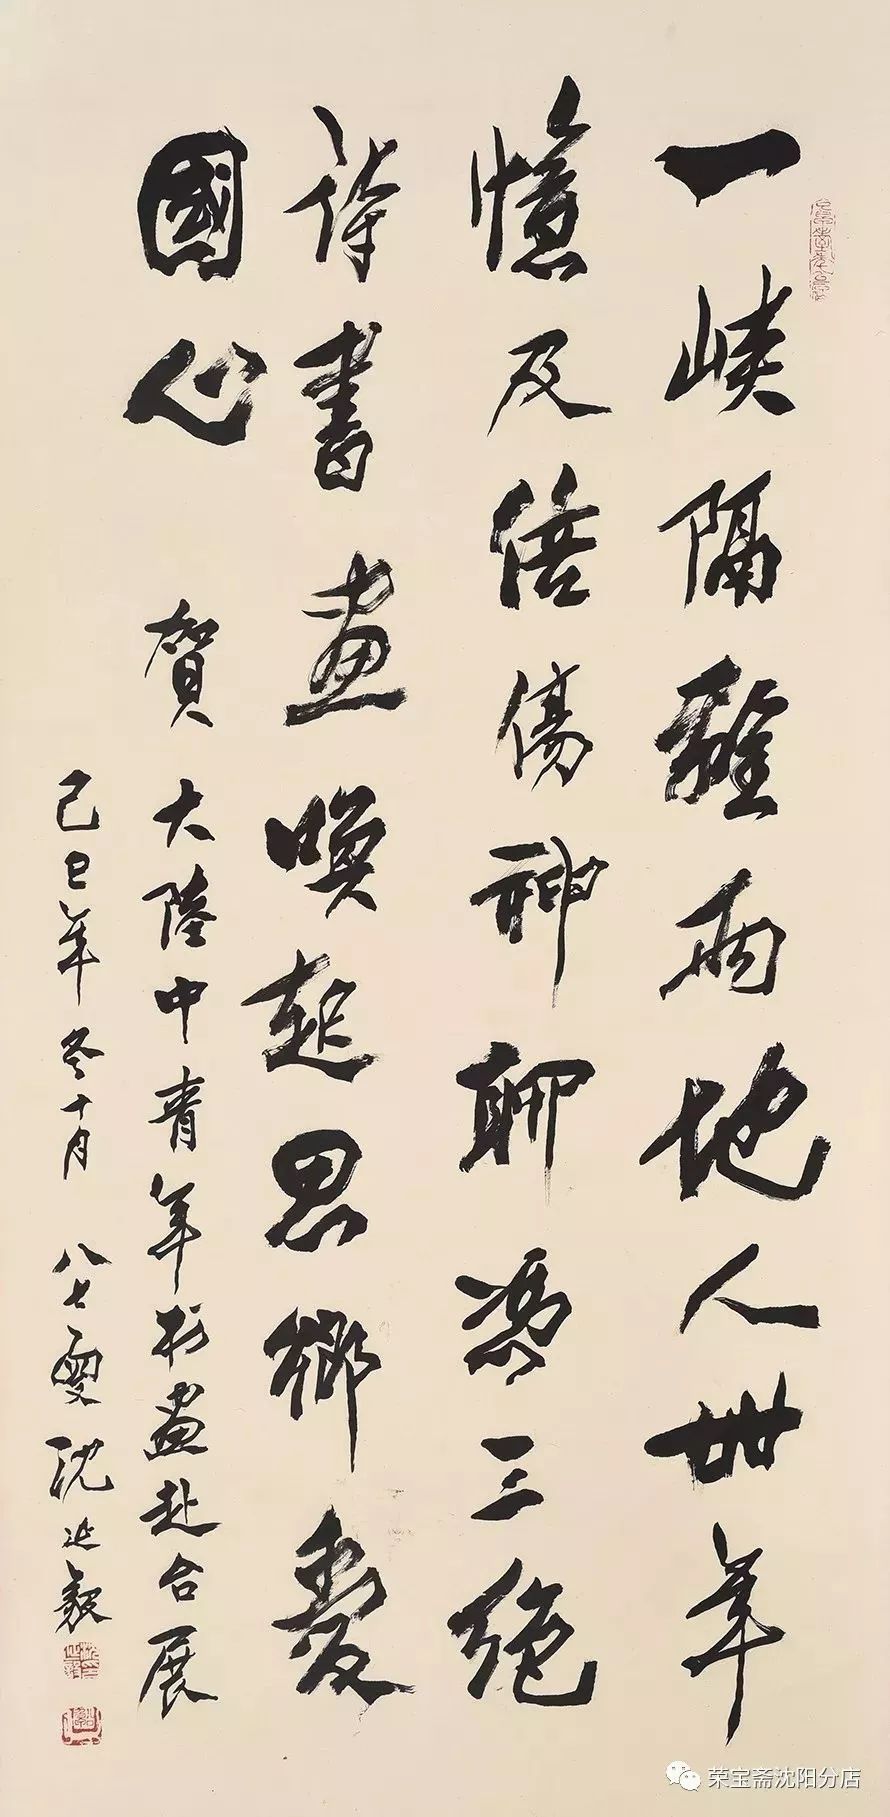 一峽隔離兩地人卌年
憶及倍傷神聊憑三絕
詩書畫喚起思鄉愛
國心 賀大陸中青年書畫赴台展
己巳年冬十月 八七叟沈延毅
荣宝斋沈阳分店